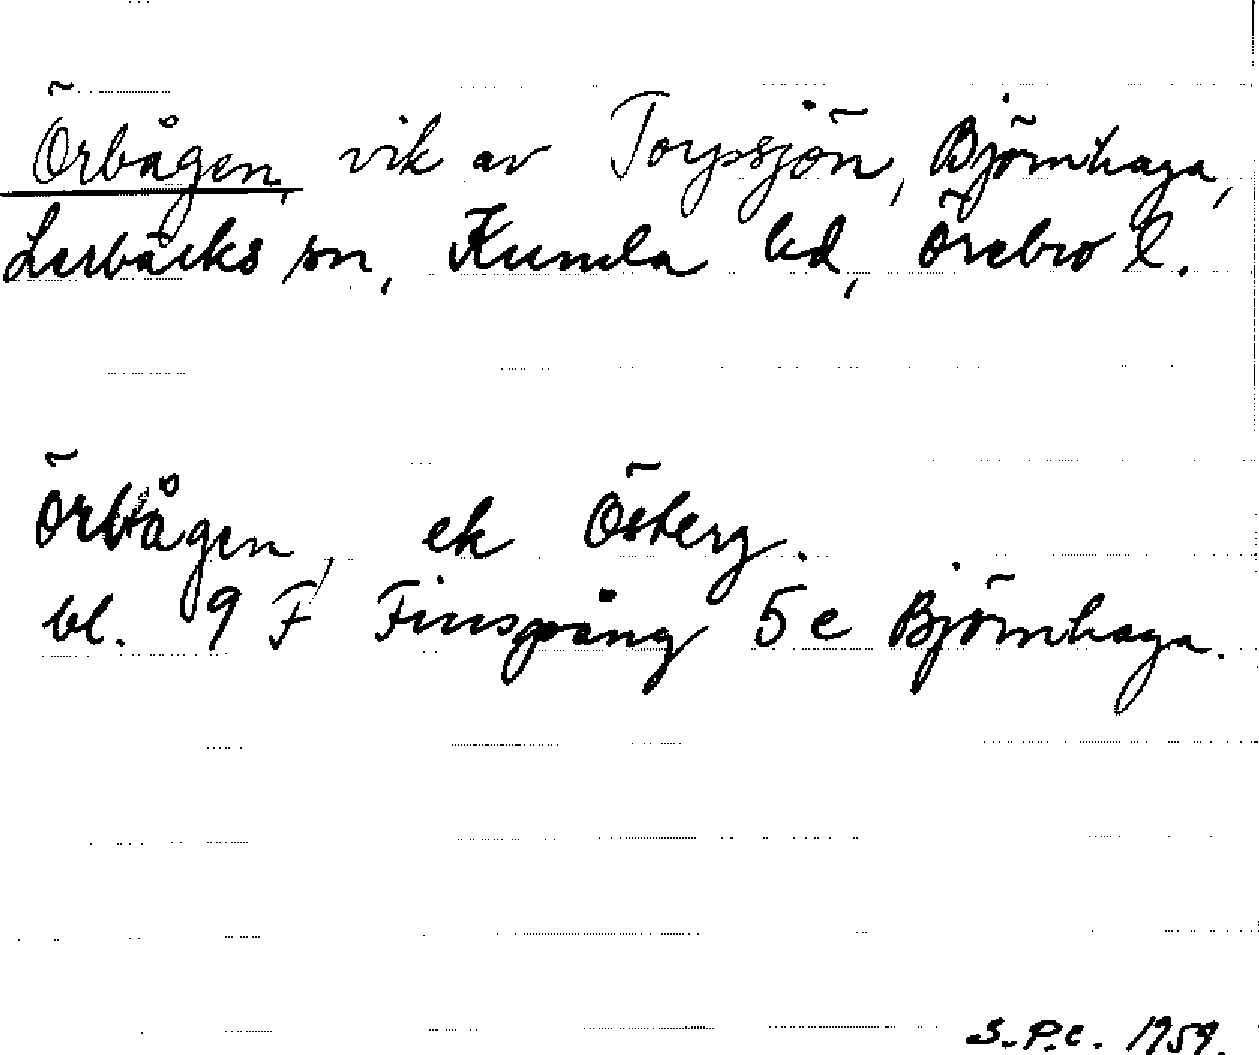 Örbågen, vik av Torpsjön, Björnhaga,
Lerbäcks sn, Kumla hd, Örebro l.
Örbågen, ek Österg.
bl. 9 F Finspång 5 e Björnhaga.
S.P.C. 1959.